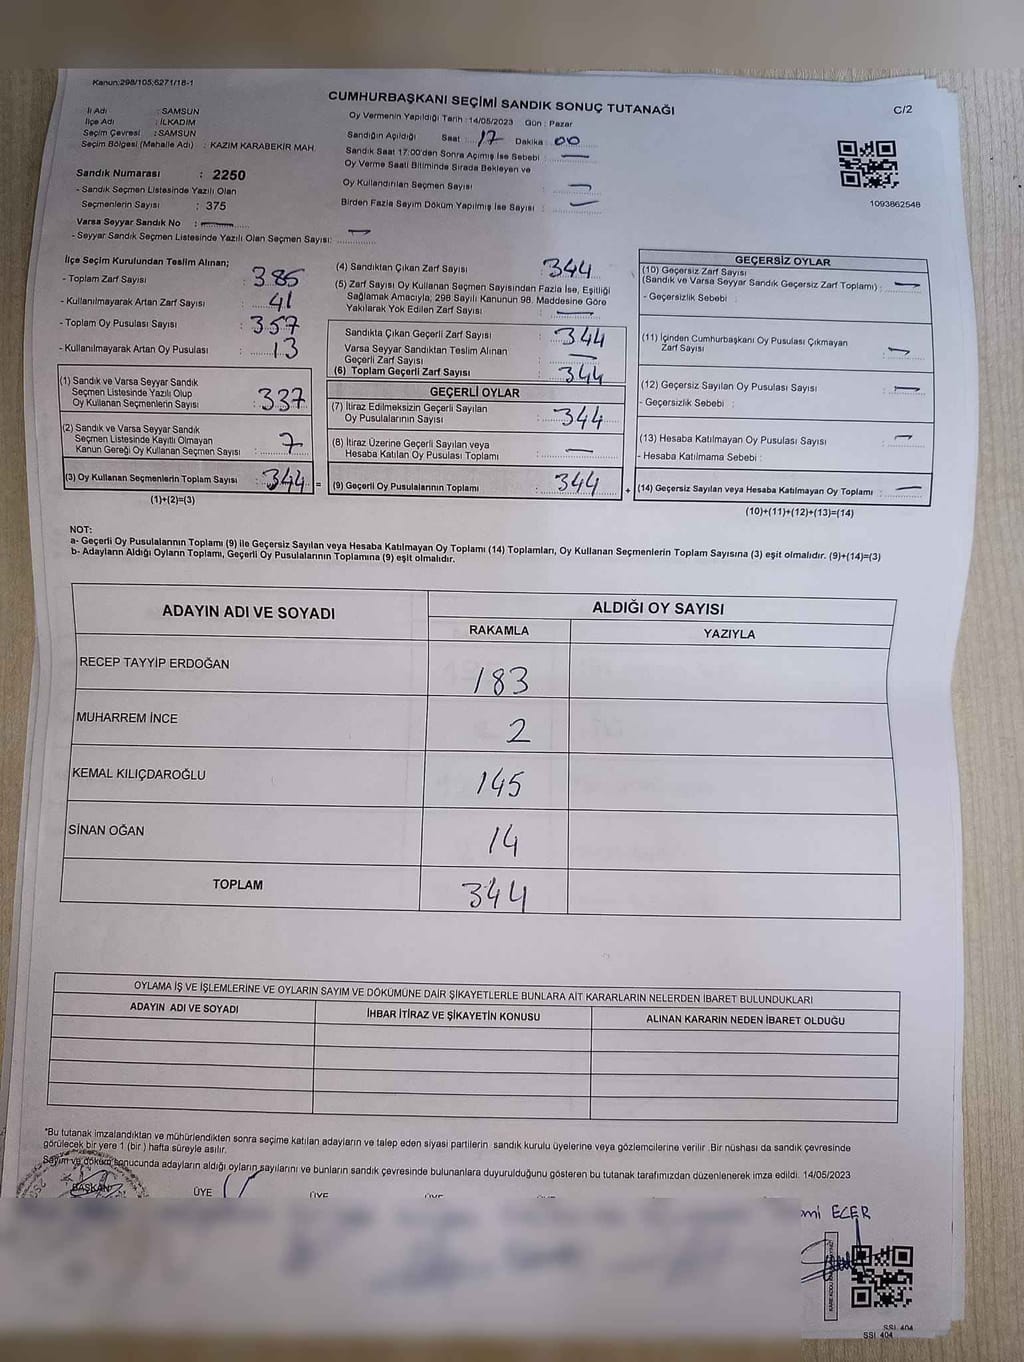 Kanun:298/105;6271/18-1
CUMHURBAŞKANI SEÇİMİ SANDIK SONUÇ TUTANAĞI
C/2
İl Adı : SAMSUN
İlçe Adı : İLKADIM
Seçim Çevresi : SAMSUN
Seçim Bölgesi (Mahalle Adı) : KAZIM KARABEKİR MAH.
Oy Vermenin Yapıldığı Tarih : 14/05/2023 Gün : Pazar
Sandığın Açıldığı Saat : 17 Dakika : 00
Sandık Saat 17:00'den Sonra Açımış İse Sebebi : —
Oy Verme Saati Bitiminde Sırada Bekleyen ve
Oy Kullandırılan Seçmen Sayısı : —
Birden Fazla Sayım Döküm Yapılmış İse Sayısı : —
1093862548
Sandık Numarası : 2250
- Sandık Seçmen Listesinde Yazılı Olan
Seçmenlerin Sayısı : 375
Varsa Seyyar Sandık No : —
- Seyyar Sandık Seçmen Listesinde Yazılı Olan Seçmen Sayısı: —
İlçe Seçim Kurulundan Teslim Alınan;
- Toplam Zarf Sayısı : 385
- Kullanılmayarak Artan Zarf Sayısı : 41
- Toplam Oy Pusulası Sayısı : 357
- Kullanılmayarak Artan Oy Pusulası : 13
(1) Sandık ve Varsa Seyyar Sandık
Seçmen Listesinde Yazılı Olup
Oy Kullanan Seçmenlerin Sayısı : 337
(2) Sandık ve Varsa Seyyar Sandık
Seçmen Listesinde Kayıtlı Olmayan
Kanun Gereği Oy Kullanan Seçmen Sayısı : 7
(3) Oy Kullanan Seçmenlerin Toplam Sayısı : 344 =
(1)+(2)=(3)
(4) Sandıktan Çıkan Zarf Sayısı : 344
(5) Zarf Sayısı Oy Kullanan Seçmen Sayısından Fazla İse, Eşitliği
Sağlamak Amacıyla; 298 Sayılı Kanunun 98. Maddesine Göre
Yakılarak Yok Edilen Zarf Sayısı : —
Sandıkta Çıkan Geçerli Zarf Sayısı : 344
Varsa Seyyar Sandıktan Teslim Alınan
Geçerli Zarf Sayısı : —
(6) Toplam Geçerli Zarf Sayısı : 344
GEÇERLİ OYLAR
(7) İtiraz Edilmeksizin Geçerli Sayılan
Oy Pusulalarının Sayısı : 344
(8) İtiraz Üzerine Geçerli Sayılan veya
Hesaba Katılan Oy Pusulası Toplamı : —
(9) Geçerli Oy Pusulalarının Toplamı : 344 +
GEÇERSİZ OYLAR
(10) Geçersiz Zarf Sayısı
(Sandık ve Varsa Seyyar Sandık Geçersiz Zarf Toplamı) : —
- Geçersizlik Sebebi :
(11) İçinden Cumhurbaşkanı Oy Pusulası Çıkmayan
Zarf Sayısı : —
(12) Geçersiz Sayılan Oy Pusulası Sayısı : —
- Geçersizlik Sebebi :
(13) Hesaba Katılmayan Oy Pusulası Sayısı : —
- Hesaba Katılmama Sebebi :
(14) Geçersiz Sayılan veya Hesaba Katılmayan Oy Toplamı : —
(10)+(11)+(12)+(13)=(14)
NOT:
a- Geçerli Oy Pusulalarının Toplamı (9) ile Geçersiz Sayılan veya Hesaba Katılmayan Oy Toplamı (14) Toplamları, Oy Kullanan Seçmenlerin Toplam Sayısına (3) eşit olmalıdır. (9)+(14)=(3)
b- Adayların Aldığı Oyların Toplamı, Geçerli Oy Pusulalarının Toplamına (9) eşit olmalıdır.
ADAYIN ADI VE SOYADI
ALDIĞI OY SAYISI
RAKAMLA YAZIYLA
RECEP TAYYİP ERDOĞAN 183
MUHARREM İNCE 2
KEMAL KILIÇDAROĞLU 145
SİNAN OĞAN 14
TOPLAM 344
OYLAMA İŞ VE İŞLEMLERİNE VE OYLARIN SAYIM VE DÖKÜMÜNE DAİR ŞİKAYETLERLE BUNLARA AİT KARARLARIN NELERDEN İBARET BULUNDUKLARI
ADAYIN ADI VE SOYADI İHBAR İTİRAZ VE ŞİKAYETİN KONUSU ALINAN KARARIN NEDEN İBARET OLDUĞU
*Bu tutanak imzalandıktan ve mühürlendikten sonra seçime katılan adayların ve talep eden siyasi partilerin sandık kurulu üyelerine veya gözlemcilerine verilir .Bir nüshası da sandık çevresinde
görülecek bir yere 1 (bir ) hafta süreyle asılır.
Sayım ve döküm sonucunda adayların aldığı oyların sayılarını ve bunların sandık çevresinde bulunanlara duyurulduğunu gösteren bu tutanak tarafımızdan düzenlenerek imza edildi. 14/05/2023
BAŞKAN ÜYE ÜYE ÜYE ÜYE
ECER
SSI. 404
SSI. 404